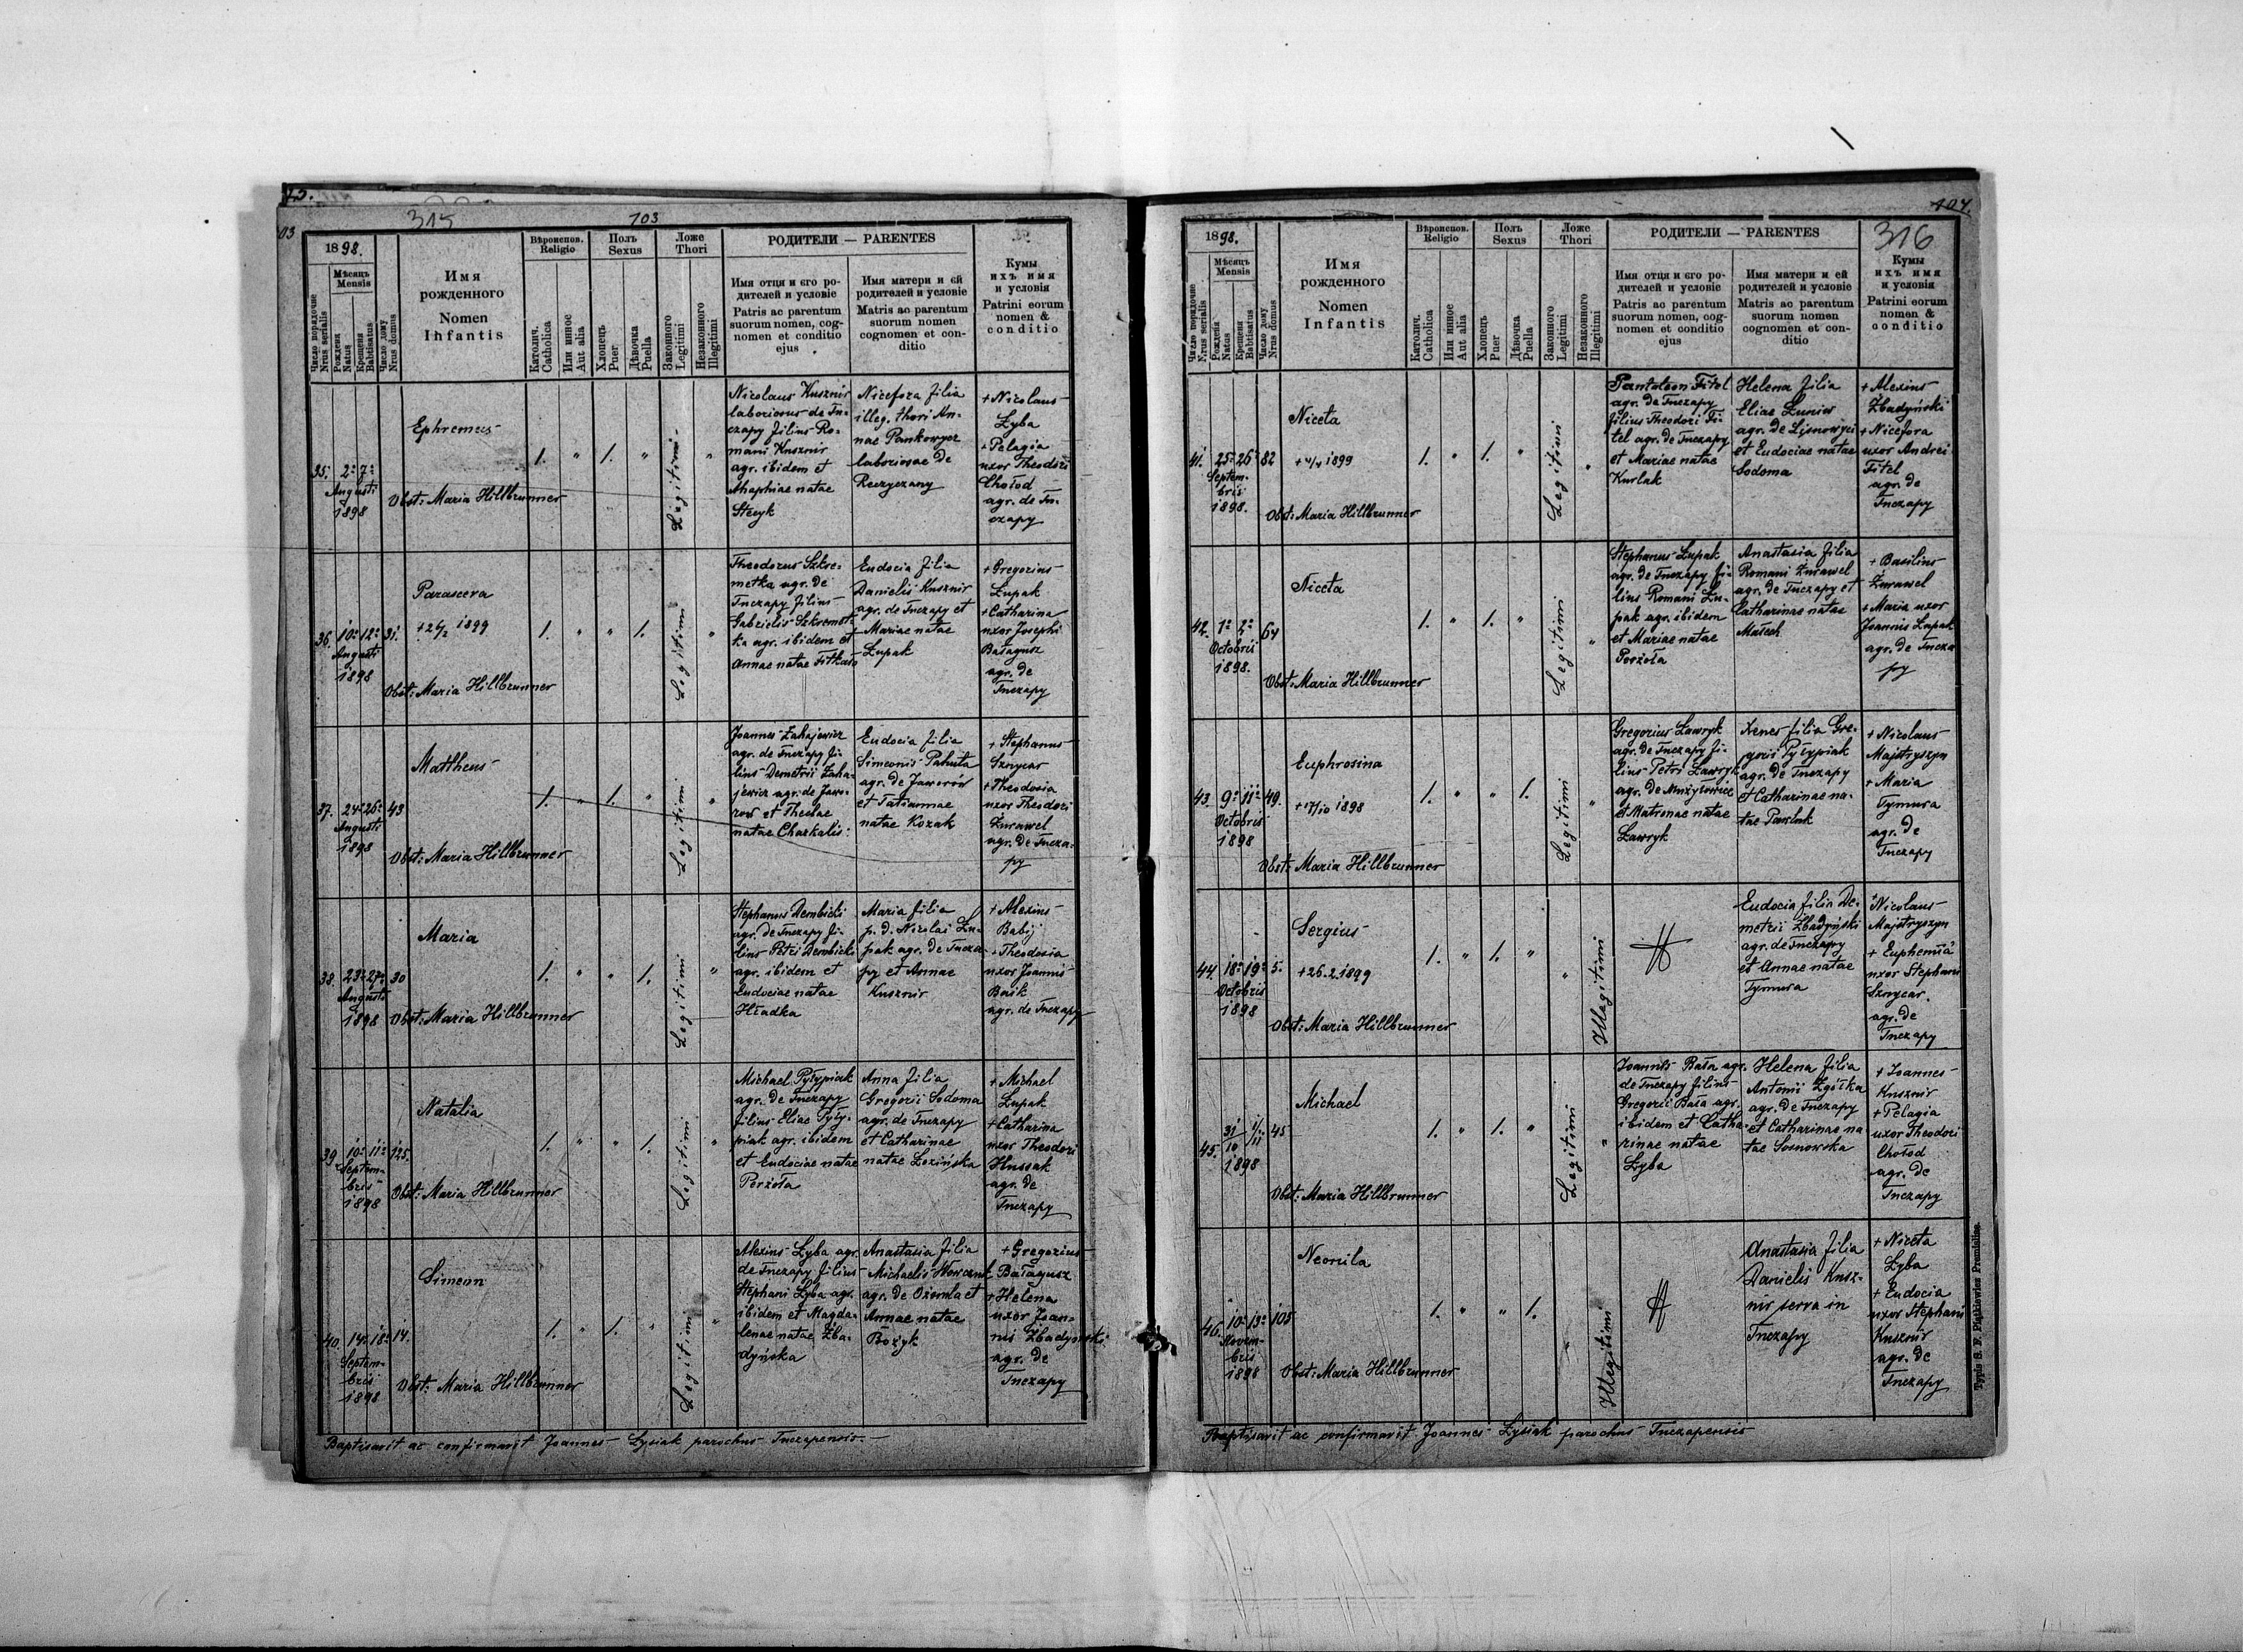 315
103
03
1898.
Мѣсяць
Mensis
Число порядочне
Nrus serialis
Рожденя
Natus
Крещеня
Babtisatus
Число дому
Nrus domus
Имя
рожденного
Nomen
Infantis
Вѣроиспов.
Religio
Католич.
Catholica
Или инное
Aut alia
Полъ
Sexus
Хлопець
Puer
Дѣвочка
Puella
Ложе
Thori
Законного
Legitimi
Незаконного
Illegitimi
РОДИТЕЛИ — PARENTES
Имя отця и єго ро-
дителей и условіе
Patris ac parentum
suorum nomen, cog-
nomen et conditio
ejus
Имя матери и єй
родителей и условіе
Matris ac parentum
suorum nomen
cognomen et con-
ditio
Кумы
ихъ имя
и условія
Patrini eorum
nomen &
conditio
35. 2: 7:
Augusti
1898
Ephremus
Obst: Maria Hillbrunner
1. " 1. "
Legitimi "
Nicolaus Kusznir
laboriosus de Tu-
czapy filius Ro-
mani Kusznir
agr. ibidem et
Ahaphiae natae
Stecyk
Nicefora filia
illeg. thori An-
nae Pankowycz
laboriosae de
Reczyczany
+ Nicolaus
Łyba
+ Pelagia
uxor Theodori
Chołod
agr. de Tu-
czapy
36. 10: 12: 31.
Augusti
1898
Parasceva
+ 26/2 1899
Obst: Maria Hillbrunner
1. " " 1.
Legitimi "
Theodorus Szkre-
metka agr. de
Tuczapy filius
Gabrielis Szkremet-
ka agr. ibidem et
Annae natae Fitkało
Eudocia filia
Danielis Kusznir
agr. de Tuczapy et
Mariae natae
Łupak
+ Gregorius
Łupak
+ Catharina
uxor Josephi
Bałagusz
agr. de
Tuczapy
37. 24: 26: 43
Augusti
1898
Mattheus
Obst: Maria Hillbrunner
1. " 1. "
Legitimi "
Joannes Zahajewicz
agr. de Tuczapy fi-
lius Demetrii Zaha-
jewicz agr. de Jawo-
rów et Theclae
natae Charkalis:
Eudocia filia
Simeonis Pahuta
agr. de Jaworów
et Tatiannae
natae Kozak
+ Stephanus
Sznycar
+ Theodosia
uxor Theodori
Żurawel
agr. de Tucza-
py
38. 23: 27: 30
Augusti
1898
Maria
Obst: Maria Hillbrunner
1. " " 1.
Legitimi "
Stephanus Dembicki
agr. de Tuczapy fi-
lius Petri Dembicki
agr. ibidem et
Eudociae natae
Hładka
Maria filia
p. d. Nicolai Łu-
pak agr. de Tucza-
py et Annae
Kusznir
+ Alexius
Babij
+ Theodosia
uxor Joannis
Baik
agr. de Tuczapy
39. 10: 11: 125.
Septem-
bris
1898
Natalia
Obst: Maria Hillbrunner
1. " " 1.
Legitimi "
Michael Pyłypiak
agr. de Tuczapy
filius Eliae Pyły-
piak agr. ibidem
et Eudociae natae
Perżoła
Anna filia
Gregorii Sodoma
agr. de Tuczapy
et Catharinae
natae Łozińska
+ Michael
Łupak
+ Catharina
uxor Theodori
Hussak
agr. de
Tuczapy
40. 14: 18: 14.
Septem-
bris
1898
Simeon
Obst: Maria Hillbrunner
1. " 1. "
Legitimi "
Alexius Łyba agr.
de Tuczapy filius
Stephani Łyba agr.
ibidem et Magda-
lenae natae Zba-
dyńska
Anastasia filia
Michaelis Wowczuk
agr. de Ożomla et
Annae natae
Bożyk
+ Gregorius
Bałagusz
+ Helena
uxor Joan-
nis Zbadyński
agr. de
Tuczapy
Baptisavit ac confirmavit Joannes Łysiak parochus Tuczapensis.
104.
316
1898.
Мѣсяць
Mensis
Число порядочне
Nrus serialis
Рожденя
Natus
Крещеня
Babtisatus
Число дому
Nrus domus
Имя
рожденного
Nomen
Infantis
Вѣроиспов.
Religio
Католич.
Catholica
Или инное
Aut alia
Полъ
Sexus
Хлопець
Puer
Дѣвочка
Puella
Ложе
Thori
Законного
Legitimi
Незаконного
Illegitimi
РОДИТЕЛИ — PARENTES
Имя отця и єго ро-
дителей и условіе
Patris ac parentum
suorum nomen, cog-
nomen et conditio
ejus
Имя матери и єй
родителей и условіе
Matris ac parentum
suorum nomen
cognomen et con-
ditio
Кумы
ихъ имя
и условія
Patrini eorum
nomen &
conditio
41. 25: 26: 82
Septem-
bris
1898.
Niceta
1899
Obst: Maria Hillbrunner
1. " 1. "
Legitimi "
Pantaleon Fitel
agr. de Tuczapy
filius Theodori Fi-
tel agr. de Tuczapy
et Mariae natae
Kurlak
Helena filia
Eliae Łuniów
agr. de Lisnowyci
et Eudociae natae
Sodoma
+ Alexius
Zbadyński
+ Nicefora
uxor Andrei
Fitel
agr. de
Tuczapy
42. 1: 2: 64
Octobris
1898.
Niceta
Obst: Maria Hillbrunner
1. " 1. "
Legitimi "
Stephanus Łupak
agr. de Tuczapy fi-
lius Romani Łu-
pak agr. ibidem
et Mariae natae
Perżoła
Anastasia filia
Romani Żurawel
agr. de Tuczapy et
Catharinae natae
Małech
+ Basilius
Żurawel
+ Maria uxor
Joannis Łupak
agr. de Tucza
py
43. 9: 11: 49.
Octobris
1898
Euphrosina
+ 17/10 1898
Obst: Maria Hillbrunner
1. " " 1.
Legitimi "
Gregorius Ławryk
agr. de Tuczapy fi-
lius Petri Ławryk
agr. de Mużyłowice
et Matronae natae
Ławryk
Xenes filia Gre-
gorii Pyłypiak
agr. de Tuczapy
et Catharinae na-
tae Pawluk
+ Nicolaus
Majstryszyn
+ Maria
Tymura
agr. de
Tuczapy
44. 18: 19: 5.
Octobris
1898
Sergius
+ 26.2.1899
Obst: Maria Hillbrunner
1. " 1. "
" Illegitimi
Eudocia filia De-
metrii Zbadyński
agr. de Tuczapy
et Annae natae
Tymura
+ Nicolaus
Majstryszyn
+ Euphemia
uxor Stephani
Sznycar.
agr. de
Tuczapy
45. 31/10 1/11 45
1898
Michael
Obst: Maria Hillbrunner
1. " 1. "
Legitimi "
Joannes Bała agr.
de Tuczapy filius
Gregorii Bała agr.
ibidem et Catha-
rinae natae
Łyba
Helena filia
Antonii Zgółka
agr. de Tuczapy
et Catharinae na-
tae Sosnowska
+ Joannes
Kusznir
+ Pelagia
uxor Theodori
Chołod
agr. de
Tuczapy
46. 10: 13: 105
Novem-
bris
1898
Neonila
Obst: Maria Hillbrunner
1. " " 1.
" Illegitimi
Anastasia filia
Danielis Kusz-
nir serva in
Tuczapy
+ Niceta
Łyba
+ Eudocia
uxor Stephani
Kusznir
agr. de
Tuczapy
Baptisavit ac confirmavit Joannes Łysiak parochus Tuczapensis
Typis S. F. Piątkiewicz Premisliae.